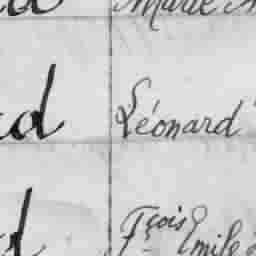 Marie
d Léonard
d Fçois Emile